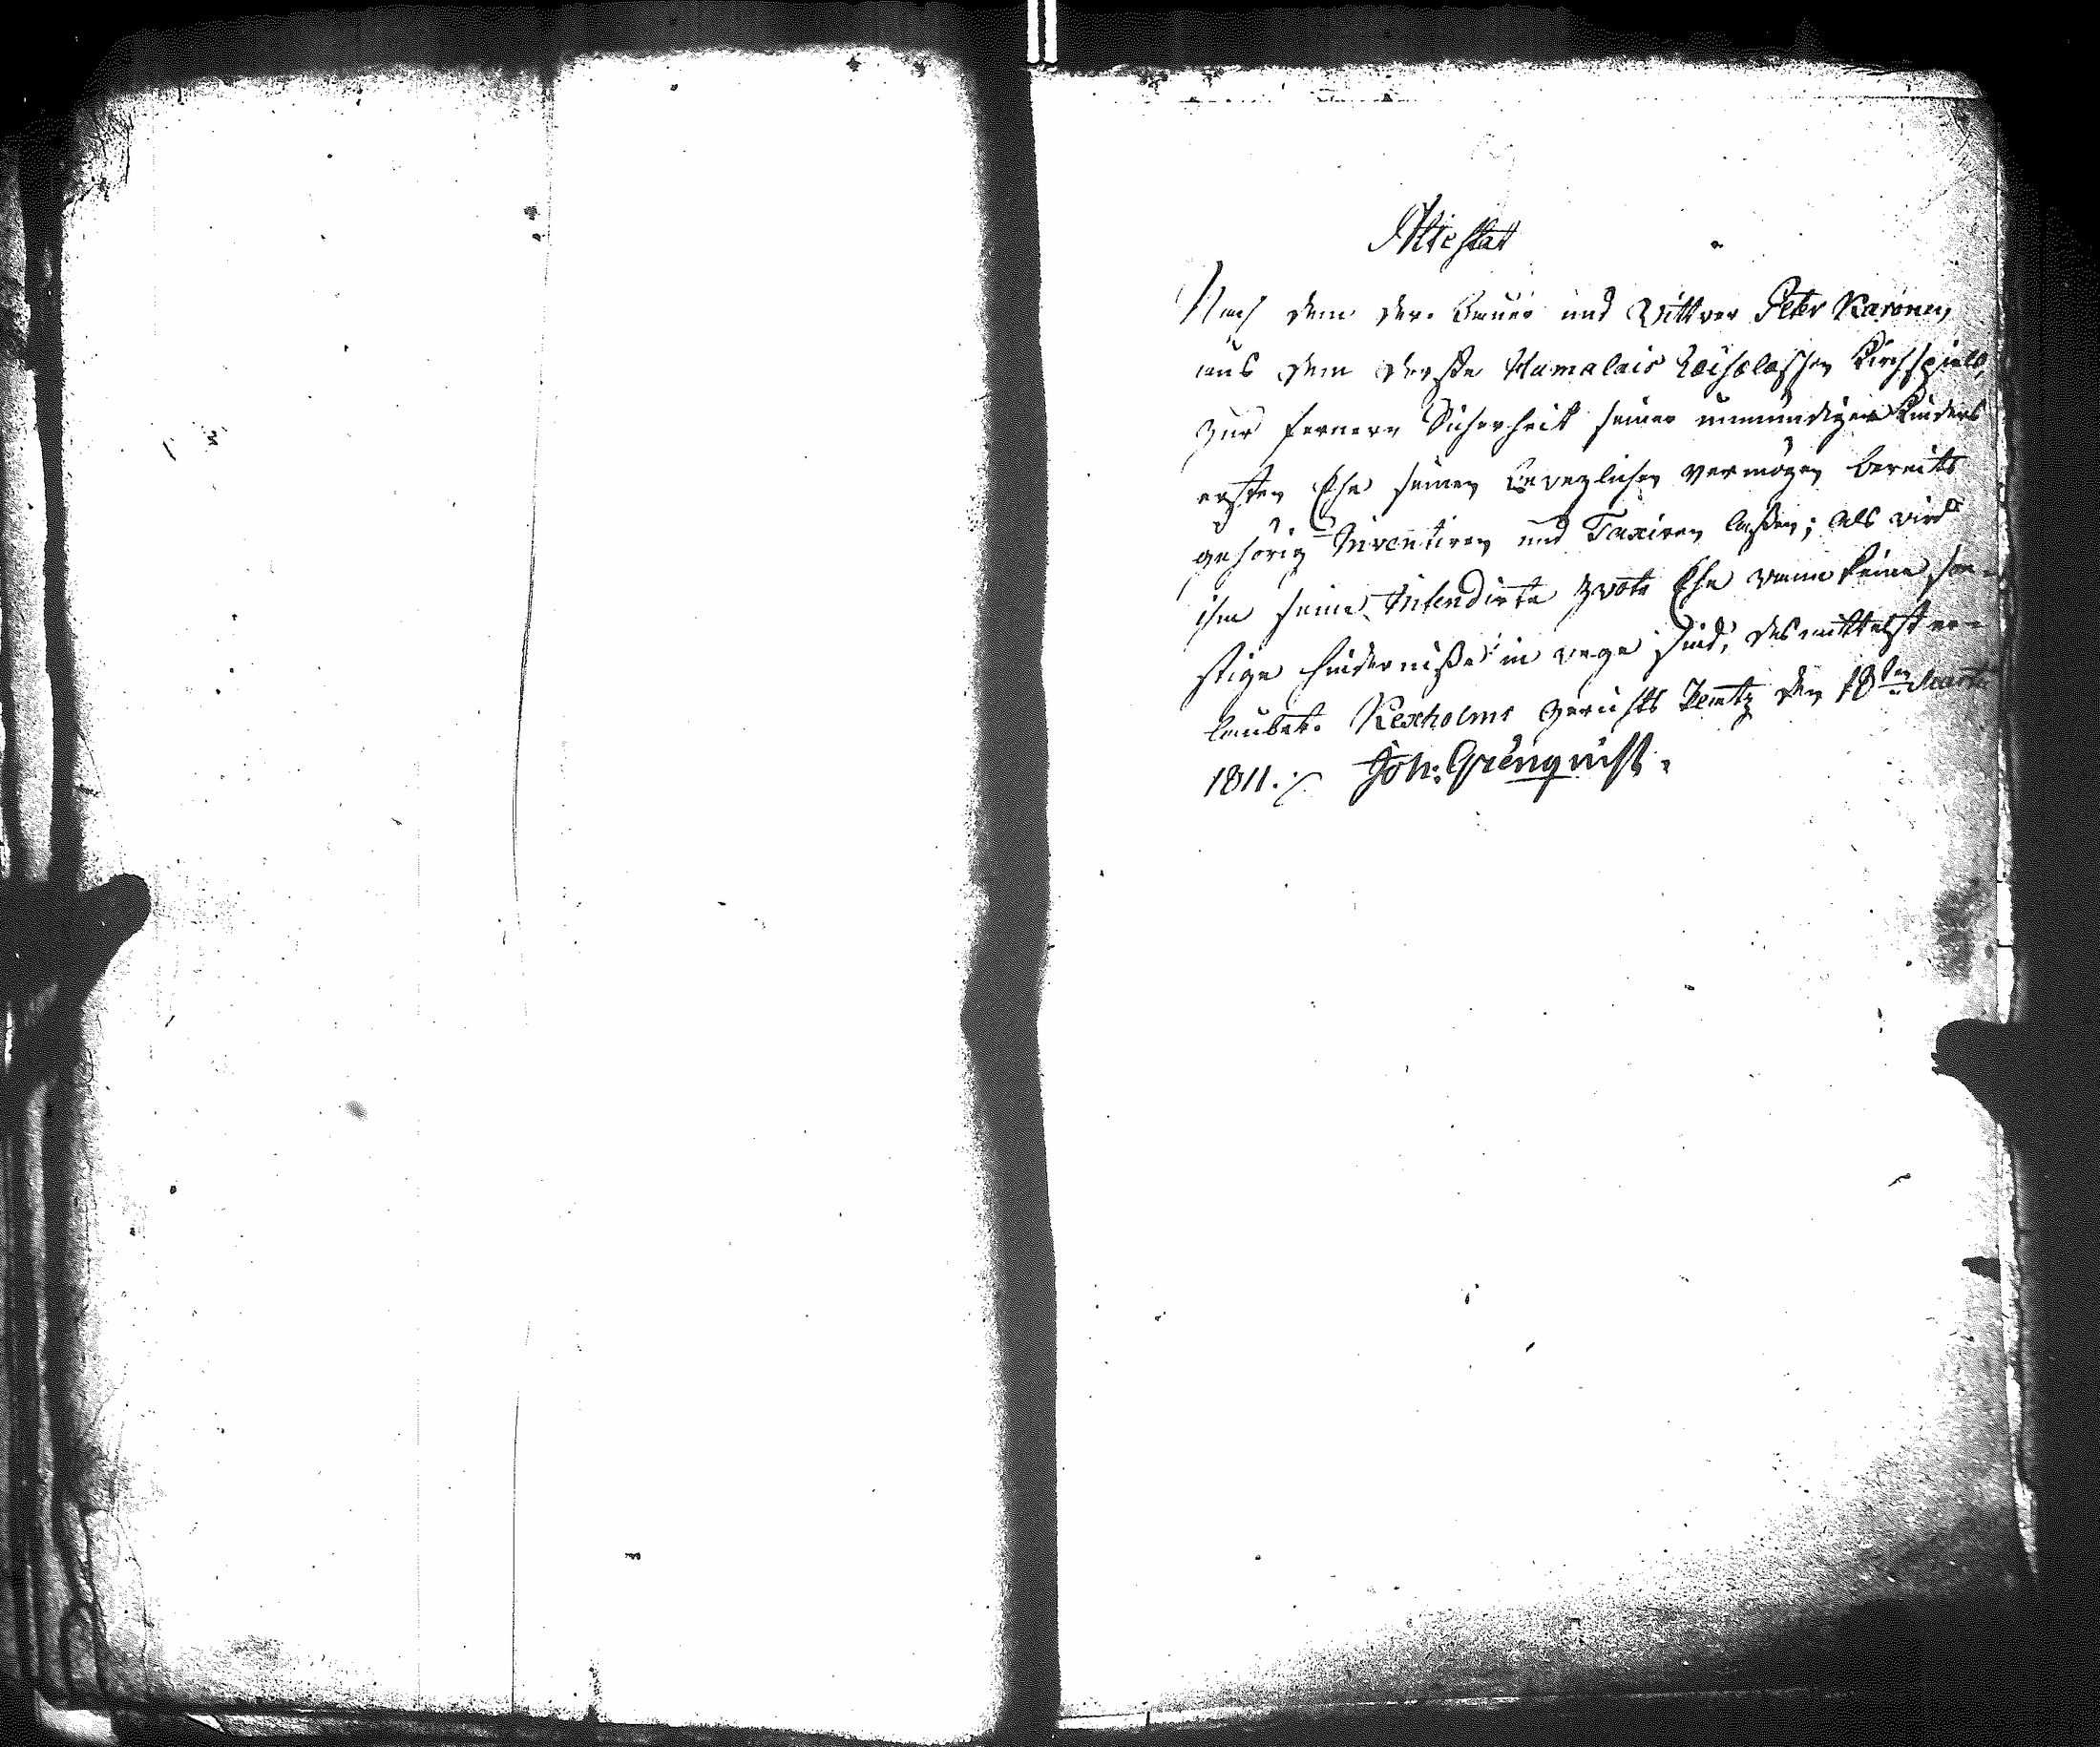 Attestat
Nach dem der Bauer und Wittwer Peter Karonen,
aus dem Dorffe Hamalais Räisälaschen Kirchspiels,
zur fernern Sicherheit seiner unmündigen Kinders
ersten Ehe seinen beweglichen vermögen bereits
gehörig Inventiren und Taxiren laßen; als wird
ihm seine Intendirte zwote Ehe wenn keine son-
stige hinderniße in wege sind, desmittelst er-
laubet. Kexholms gerichts den 18ten Martii
1811. Joh: Grénqvist.